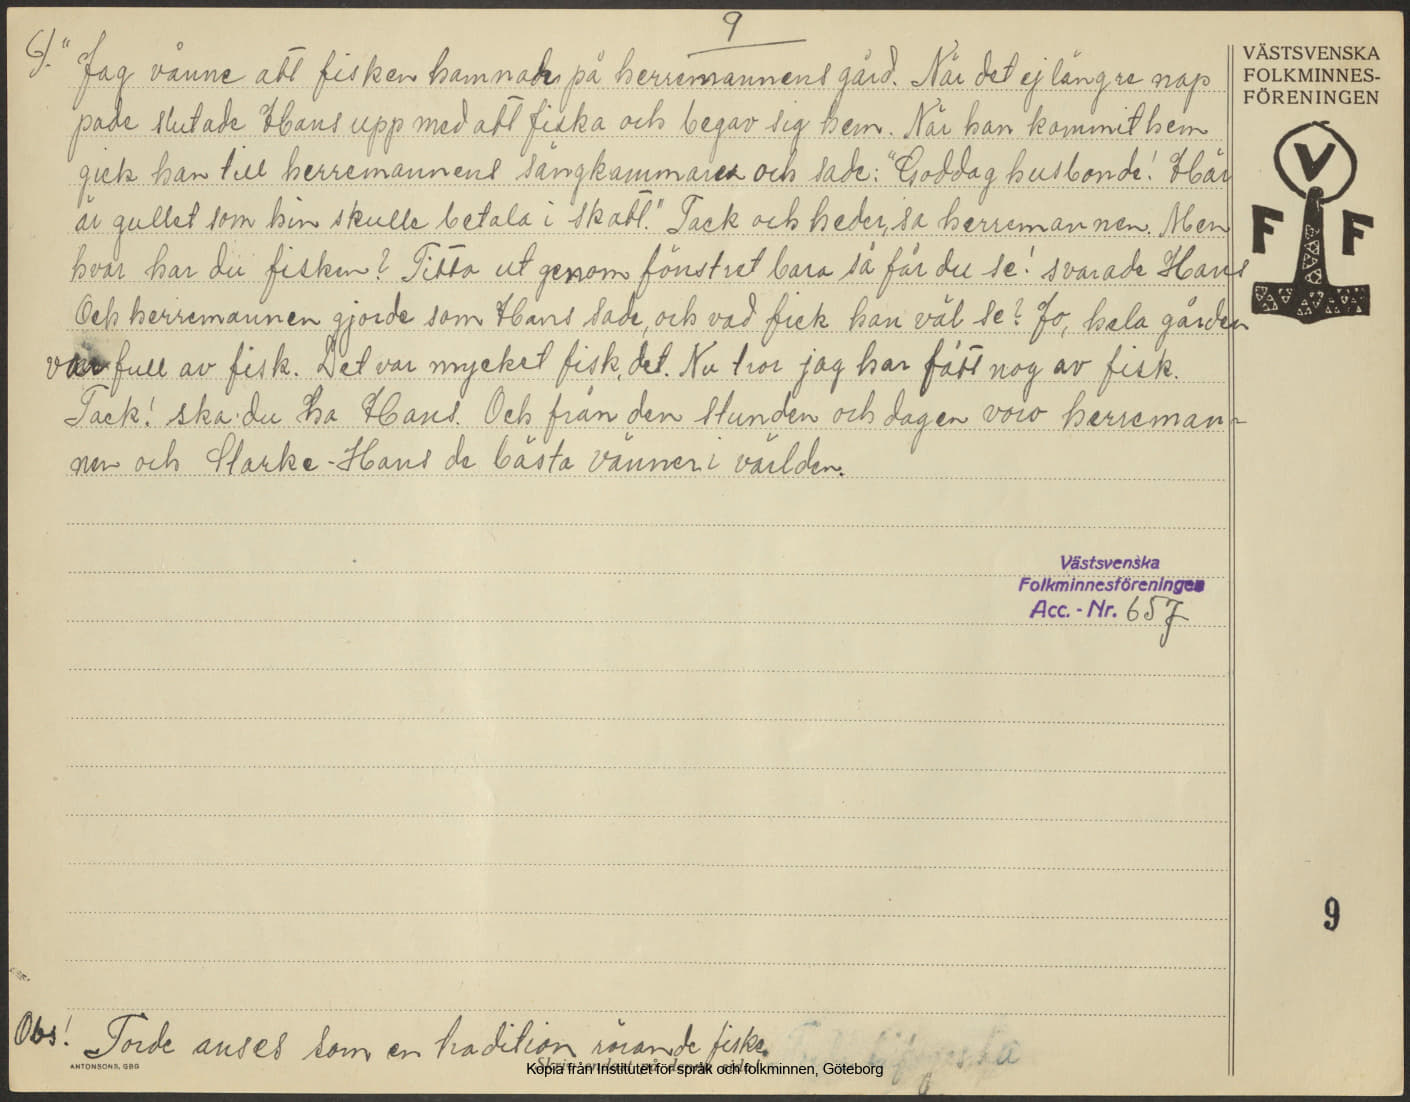 9
6). "Jag vånne att fisken hamnade på herremannens gård. När det ej längre nap
pade slutade Hans upp med att fiska och begav sig hem. När han kommit hem
gick han till herremannens sängkammare och sade: "Goddag husbonde! Här
är gullet som hin skulle betala i skatt." Tack och heder, sa herremannen. Men
hvar har du fisken? Titta ut genom fönstret bara så får du se! svarade Hans
Och herremannen gjorde som Hans sade, och vad fick han väl se? Jo, hela gården
var full av fisk. Det var mycket fisk, det. Nu tror jag har fått nog av fisk.
Tack! ska du ha Hans. Och från den stunden och dagen voro herreman-
nen och Starke-Hans de bästa vänner i världen.
VÄSTSVENSKA
FOLKMINNES-
FÖRENINGEN
V
F F
Västsvenska
Folkminnesföreningen
Acc. - Nr. 657
9
Obs! Torde anses som en tradition rörande fiske.
ANTONSONS, GBG
Kopia från Institutet för språk och folkminnen, Göteborg